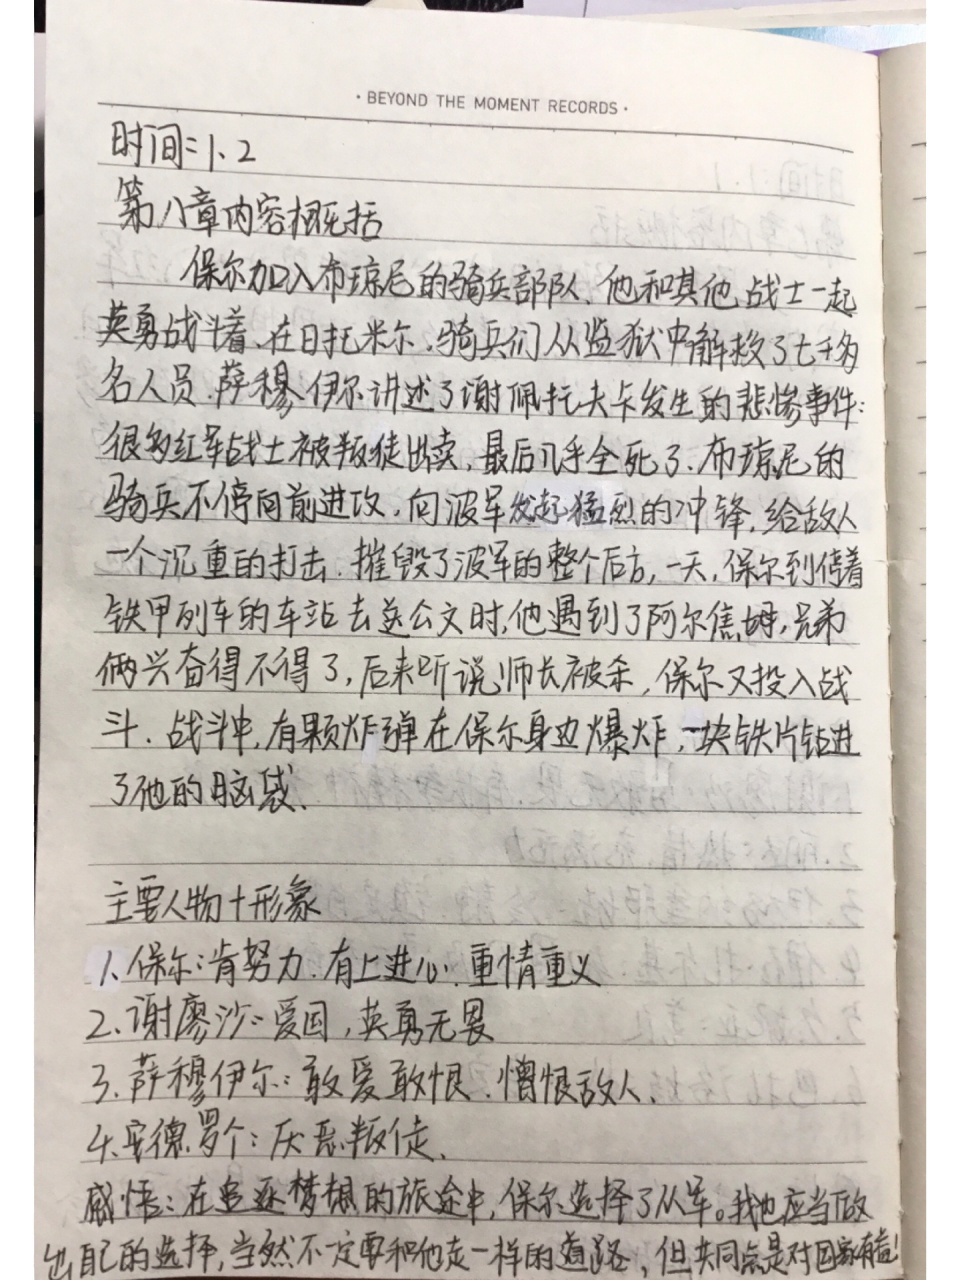 · BEYOND THE MOMENT RECORDS ·
时间:1、2
第八章内容概括
保尔加入布琼尼的骑兵部队、他和其他战士一起
英勇战斗着、在日托米尔、骑兵们从监狱中解救了七千多
名人员.萨穆伊尔讲述了谢佩托夫卡发生的悲惨事件:
很多红军战士被叛徒出卖,最后几乎全死了.布琼尼的
骑兵不停向前进攻,向波军发起猛烈的冲锋,给敌人
一个沉重的打击.摧毁了波军的整个后方,一天,保尔到停着
铁甲列车的车站去送公文时,他遇到了阿尔焦姆,兄弟
俩兴奋得不得了,后来听说师长被杀,保尔又投入战
斗.战斗中,有颗炸弹在保尔身边爆炸,一块铁片钻进
了他的脑袋、
主要人物+形象
1、保尔:肯努力.有上进心.重情重义
2.谢廖沙:爱国,英勇无畏
3.萨穆伊尔:敢爱敢恨.憎恨敌人、
4.安德罗个:厌恶叛徒、
感悟:在追逐梦想的旅途中,保尔选择了从军。我也应当做
出自己的选择,当然不一定要和他走一样的道路,但共同点是对国家有益!